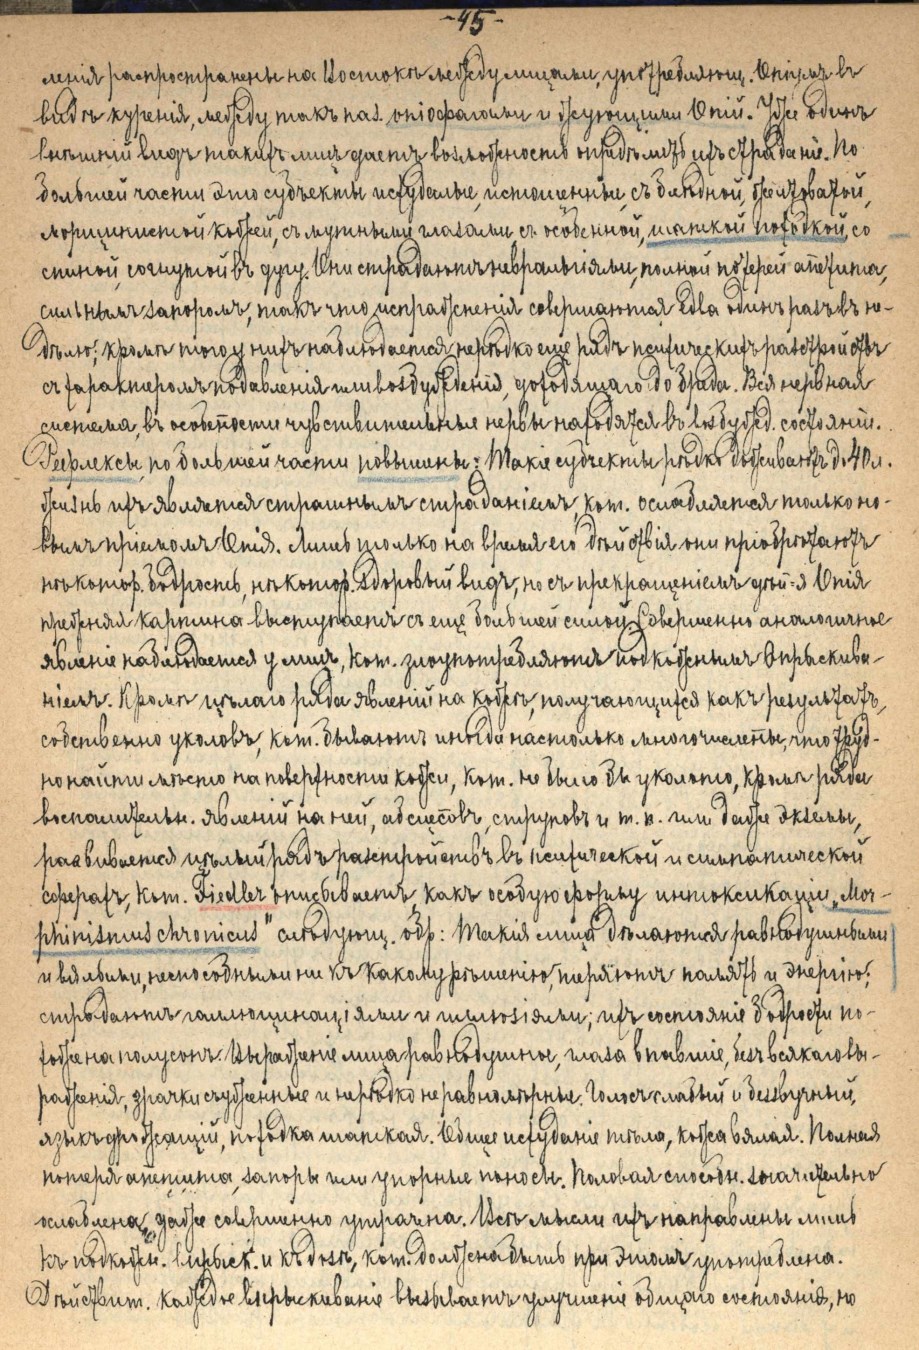 -45-
ленія распространены на Востокѣ между лицами, употребляющ. Опіумъ въ
видѣ куренія, между такъ наз. опіофагами и жующими Опій. Уже одинъ
внѣшній видъ такихъ лицъ даетъ возможность опредѣлить ихъ страданіе. По
большей части это субъекты исхудалые, истощенные, съ блѣдной, желтоватой,
морщинистой кожей, съ мутными глазами съ особенной, шаткой походкой, со
спиной, согнутой въ дугу. Они страдаютъ невральгіями, полной потерей апетита,
сильнымъ запоромъ, такъ что испражненія совершаются едва одинъ разъ въ не-
дѣлю; кромѣ того у нихъ наблюдается нерѣдко еще рядъ психическихъ разстройствъ
съ характеромъ подавленія или возбужденія, доходящаго до бреда. Вся нервная
система, въ особенности чувствительные нервы находятся въ возбужд. состояніи.
Рефлексы, по большей части повышены: Такіе субъекты рѣдко доживаютъ до 40 л.
жизнь ихъ является страшнымъ страданіемъ, кот. ослабляется только но-
вымъ пріемомъ Опія. Лишь только на время его дѣйствія они пріобрѣтаютъ
нѣкотор. бодрость, нѣкотор. здоровый видъ, но съ прекращеніемъ дѣй-я Опія
прежняя картина выступаетъ съ ещё большей силой. Совершенно аналогичное
явленіе наблюдается у лицъ, кот. злоупотребляютъ подкожнымъ впрыскива-
ніемъ. Кромѣ цѣлаго ряда явленій на кожѣ, получающихся какъ результатъ,
собственно уколовъ, кот. бываютъ иногда настолько многочислены, что труд-
но найти мѣсто на поверхности кожи, кот. не было бы уколото, кромѣ ряда
воспалительн. явленій на ней, абсцесовъ, струповъ и т. п. или даже экземы,
развивается цѣлый рядъ разстройствъ въ психической и симпатической
сферахъ, кот. Fiedler описываетъ, какъ особую форму интоксикаціи „Mor-
phinismus chronicus" слѣдующ. обр: Такія лица дѣлаются равнодушными
и вялыми, неспособными ни къ какому рѣшенію, теряютъ память и энергію;
страдаютъ галлюцинаціями и иллюзіями; ихъ состояніе бодрости по-
хоже на полусонъ. Выраженіе лица равнодушное, глаза впавшіе, безъ всякаго вы-
раженія, зрачки съуженные и нерѣдко неравномѣрные. Голосъ слабый и беззвучный,
языкъ дрожащій, походка шаткая. Общее исхуданіе тѣла, кожа вялая. Полная
потеря апетита, запоры или упорные поносы. Половая способн. значительно
ослаблена, даже совершенно утрачена. Всѣ мысли ихъ направлены лишь
къ подкожн. впрыск. и къ дозѣ, кот. должна быть при этомъ употреблена.
Дѣйствит. каждое впрыскиваніе вызываетъ улучшеніе общаго состоянія, но